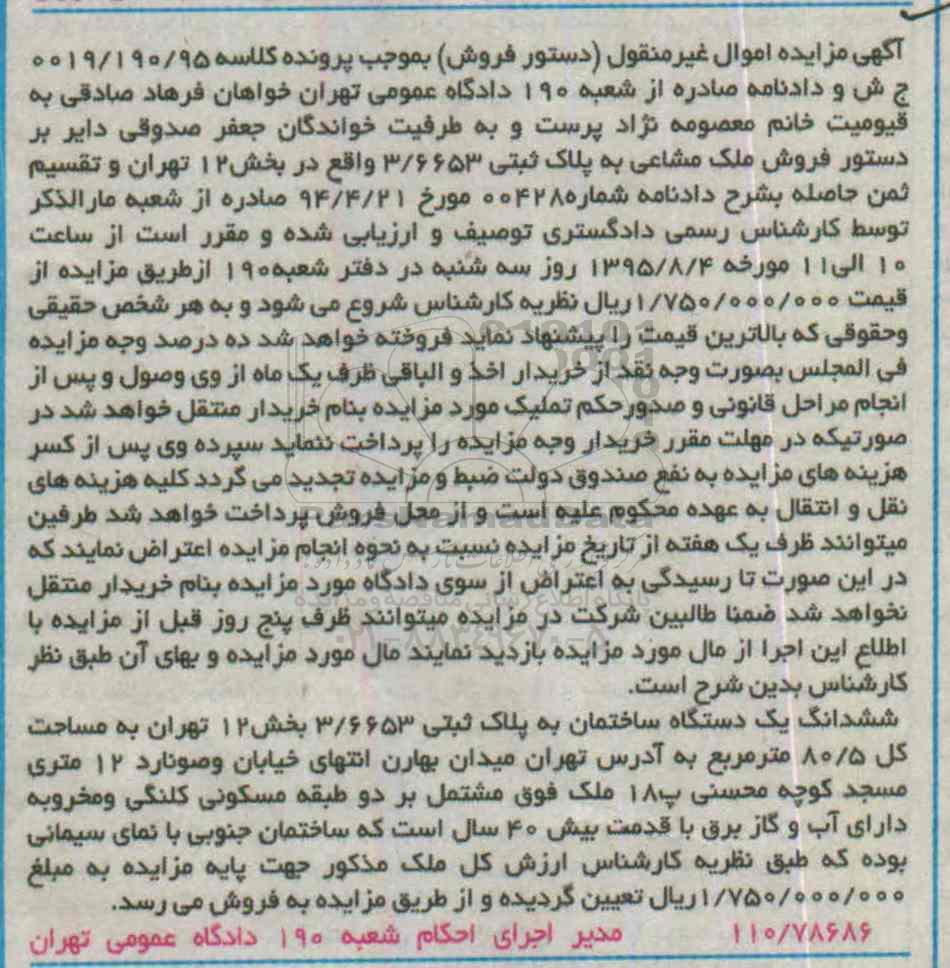 آگهی مزایده اموال غیرمنقول (دستور فروش) بموجب پرونده کلاسه ۰۰۱۹/۱۹۰/۹۵
ج ش و دادنامه صادره از شعبه ۱۹۰ دادگاه عمومی تهران خواهان فرهاد صادقی به
قیومیت خانم معصومه نژاد پرست و به طرفیت خواندگان جعفر صدوقی دایر بر
دستور فروش ملک مشاعی به پلاک ثبتی ۳/۶۶۵۳ واقع در بخش۱۲ تهران و تقسیم
ثمن حاصله بشرح دادنامه شماره۰۰۴۲۸ مورخ ۹۴/۴/۲۱ صادره از شعبه مارالذکر
توسط کارشناس رسمی دادگستری توصیف و ارزیابی شده و مقرر است از ساعت
۱۰ الی۱۱ مورخه ۱۳۹۵/۸/۴ روز سه شنبه در دفتر شعبه۱۹۰ ازطریق مزایده از
قیمت ۱/۷۵۰/۰۰۰/۰۰۰ریال نظریه کارشناس شروع می شود و به هر شخص حقیقی
وحقوقی که بالاترین قیمت را پیشنهاد نماید فروخته خواهد شد ده درصد وجه مزایده
فی المجلس بصورت وجه نقد از خریدار اخذ و الباقی ظرف یک ماه از وی وصول و پس از
انجام مراحل قانونی و صدورحکم تملیک مورد مزایده بنام خریدار منتقل خواهد شد در
صورتیکه در مهلت مقرر خریدار وجه مزایده را پرداخت ننماید سپرده وی پس از کسر
هزینه های مزایده به نفع صندوق دولت ضبط و مزایده تجدید می گردد کلیه هزینه های
نقل و انتقال به عهده محکوم علیه است و از محل فروش پرداخت خواهد شد طرفین
میتوانند ظرف یک هفته از تاریخ مزایده نسبت به نحوه انجام مزایده اعتراض نمایند که
در این صورت تا رسیدگی به اعتراض از سوی دادگاه مورد مزایده بنام خریدار منتقل
نخواهد شد ضمنا طالبین شرکت در مزایده میتوانند ظرف پنج روز قبل از مزایده با
اطلاع این اجرا از مال مورد مزایده بازدید نمایند مال مورد مزایده و بهای آن طبق نظر
کارشناس بدین شرح است.
ششدانگ یک دستگاه ساختمان به پلاک ثبتی ۳/۶۶۵۳ بخش۱۲ تهران به مساحت
کل ۸۰/۵ مترمربع به آدرس تهران میدان بهارن انتهای خیابان وصونارد ۱۲ متری
مسجد کوچه محسنی پ۱۸ ملک فوق مشتمل بر دو طبقه مسکونی کلنگی ومخروبه
دارای آب و گاز برق با قدمت بیش ۴۰ سال است که ساختمان جنوبی با نمای سیمانی
بوده که طبق نظریه کارشناس ارزش کل ملک مذکور جهت پایه مزایده به مبلغ
۱/۷۵۰/۰۰۰/۰۰۰ریال تعیین گردیده و از طریق مزایده به فروش می رسد.
۱۱۰/۷۸۶۸۶ مدیر اجرای احکام شعبه ۱۹۰ دادگاه عمومی تهران